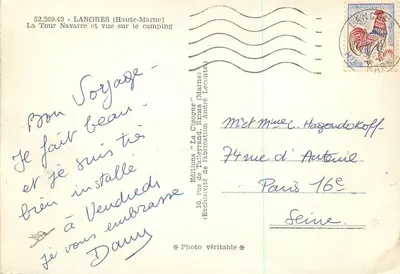 52.269.43 - LANGRES (Haute-Marne)
La Tour Navarre et vue sur le camping
Bon Voyage -
Je fait beau -
et je suis très
bien installé
à Vendredi
je vous embrasse
Dany
Editions "La Cigogne"
10, rue de Talleyrand, Reims (Marne)
(Exclusivité de fabrication André Leconte)
* Photo véritable *
M et Mme C. Hagondokoff
74 rue d'Auteuil
Paris 16e
Seine